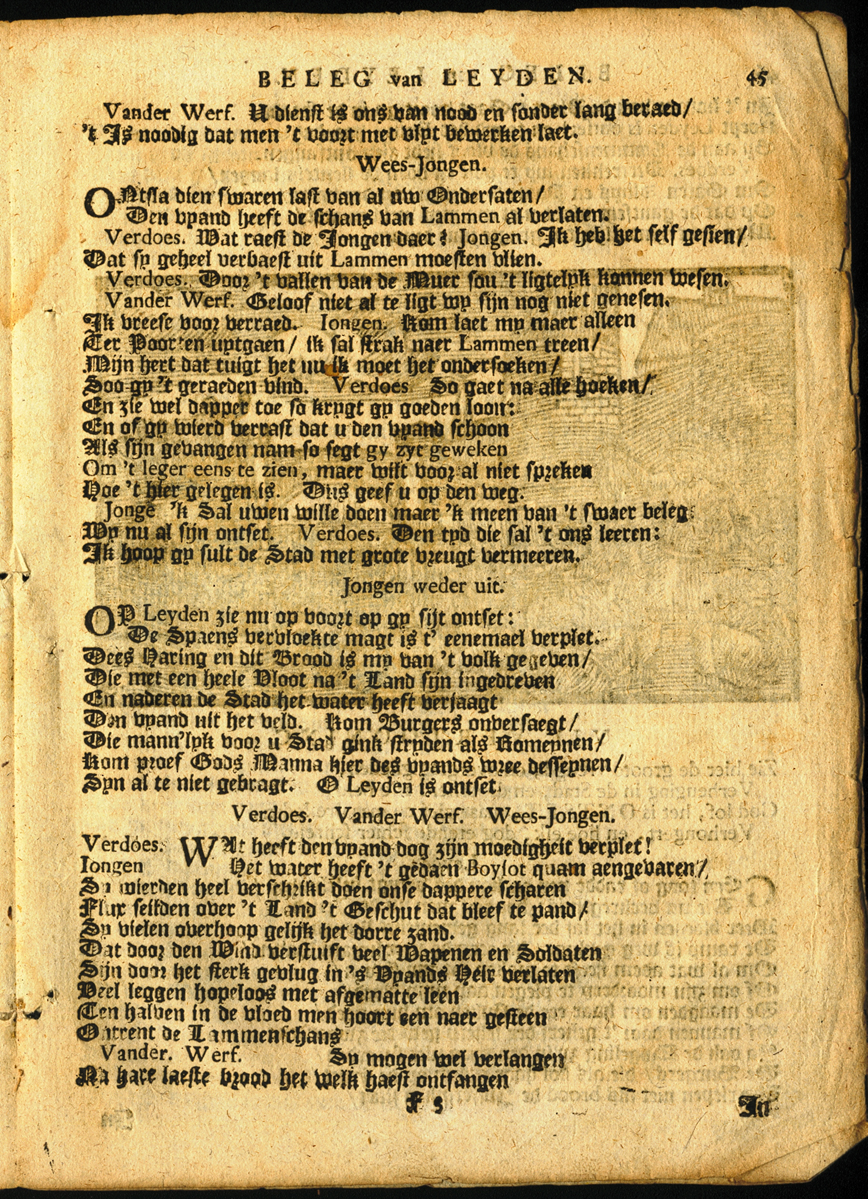 BELEG van LEYDEN. 45
Vander Werf. U dienst is ons van nood en sonder lang beraed/
't Is noodig dat men 't voort met vlyt bewerken laet.
Wees-Jongen.
ONtsla dien swaren last van al uw Ondersaten/
Den vyand heeft de schans van Lammen al verlaten.
Verdoes. Wat raest de Jongen daer? Jongen. Ik heb het self gesien/
Dat sy geheel verbaest uit Lammen moesten vlien.
Verdoes. Door 't vallen van de Muer sou 't ligtelyk konnen wesen.
Vander Werf. Geloof niet al te ligt wy sijn nog niet genesen.
Ik vreese voor verraed. Iongen. Kom laet my maer alleen
Ter Poorten uytgaen/ ik sal strak naer Lammen treen/
Mijn hert dat tuigt het nu ik moet het ondersoeken/
Soo gy 't geraeden vind. Verdoes. So gaet na alle hoeken/
En zie wel dapper toe so krygt gy goeden loon:
En of gy wierd verrast dat u den vyand schoon
Als sijn gevangen nam so segt gy zyt geweken
Om 't leger eens te zien, maer wilt voor al niet spreken
Hoe 't hier gelegen is. Dus geef u op den weg.
Jonge 'k Sal uwen wille doen maer 'k meen van 't swaer beleg
Wy nu al sijn ontset. Verdoes. Den tyd die sal 't ons leeren:
Ik hoop gy sult de Stad met grote vreugt vermeeren.
Jongen weder uit.
OP Leyden zie nu op voort op gy sijt ontset:
De Spaens vervloekte magt is t' eenemael verplet.
Dees Haring en dit Brood is my van 't volk gegeven/
Die met een heele Vloot na 't Land sijn ingedreven
En naderen de Stad het water heeft verjaagt
Den vyand uit het veld. Kom Burgers onversaegt/
Die mann'lyk voor u Stad gink stryden als Romeynen/
Kom proef Gods Manna hier des vyands wree desseynen/
Syn al te niet gebragt. O Leyden is ontset.
Verdoes. Vander Werf. Wees-Jongen.
Verdoes. WAt heeft den vyand dog zijn moedigheit verplet!
Iongen Het water heeft 't gedaen Boysot quam aengevaren/
Sy wierden heel verschrikt doen onse dappere scharen
Flux seilden over 't Land 't Geschut dat bleef te pand/
Sy vielen overhoop gelijk het dorre zand.
Dat door den Wind verstuift veel Wapenen en Soldaten
Sijn door het sterk gevlug in 's Vyands Heir verlaten
Veel leggen hopeloos met afgematte leen
Ten halven in de vloed men hoort een naer gesteen
Ontrent de Lammenschans
Vander. Werf. Sy mogen wel verlangen
Na hare laeste brood het welk haest ontfangen
F 5 In